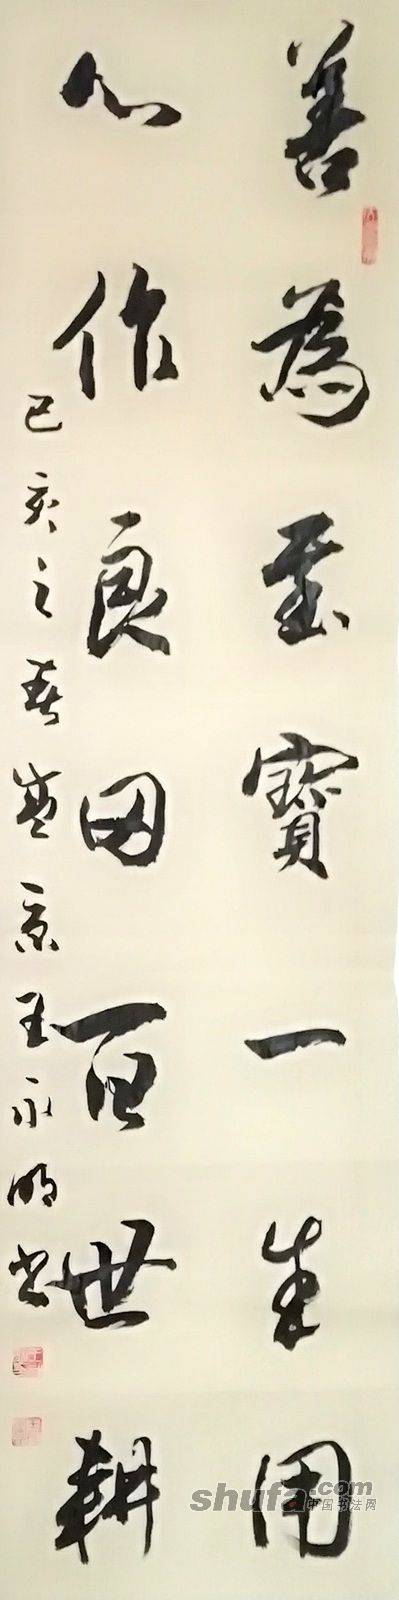 善為至寶一生用
心作良田百世耕
己亥之春盛京王永明书
shufa.com
中国书法网